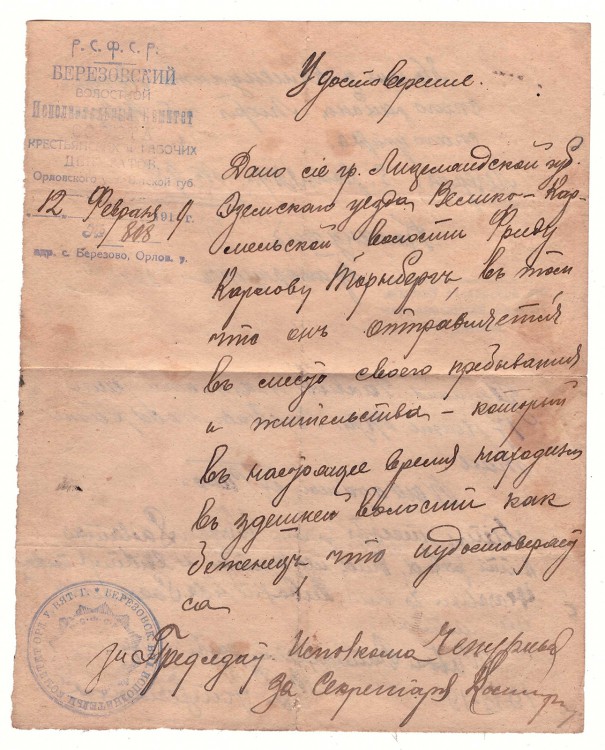 Р.С.Ф.С.Р.
БЕРЕЗОВСКИЙ
ВОЛОСТНОЙ
Исполнительный Комитет
КРЕСТЬЯНСКИХ и РАБОЧИХ
ДЕПУТАТОВ
Орловского у. Вятской губ.
12 Февраля 1919 г.
№ 808
адр. с. Березово, Орлов. у.
Удостоверение.
Дано сіе гр. Лифляндской губ.
уезда Велико-Кар-
мельской волости Фриду
Карлову въ том
что онъ отправляется
въ место своего пребывания
и жительства - который
въ настоящее время находится
въ здешней волости как
беженецъ что и удостоверяет
ся
за Председат. Исполкома
За Секретаря